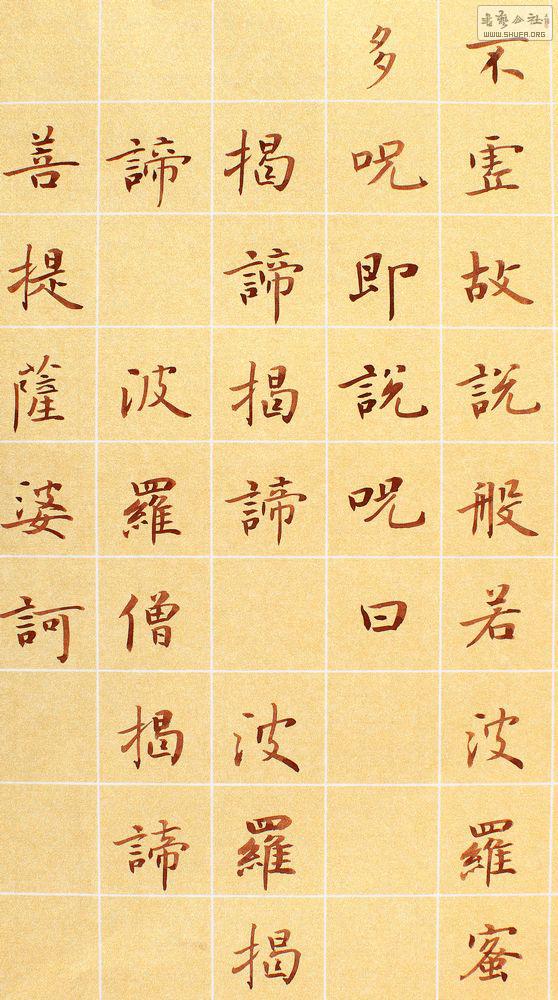 不虛故說般若波羅蜜
多咒即說咒曰
揭諦揭諦 波羅揭
諦 波羅僧揭諦
菩提薩婆訶
WWW.SHUFA.ORG